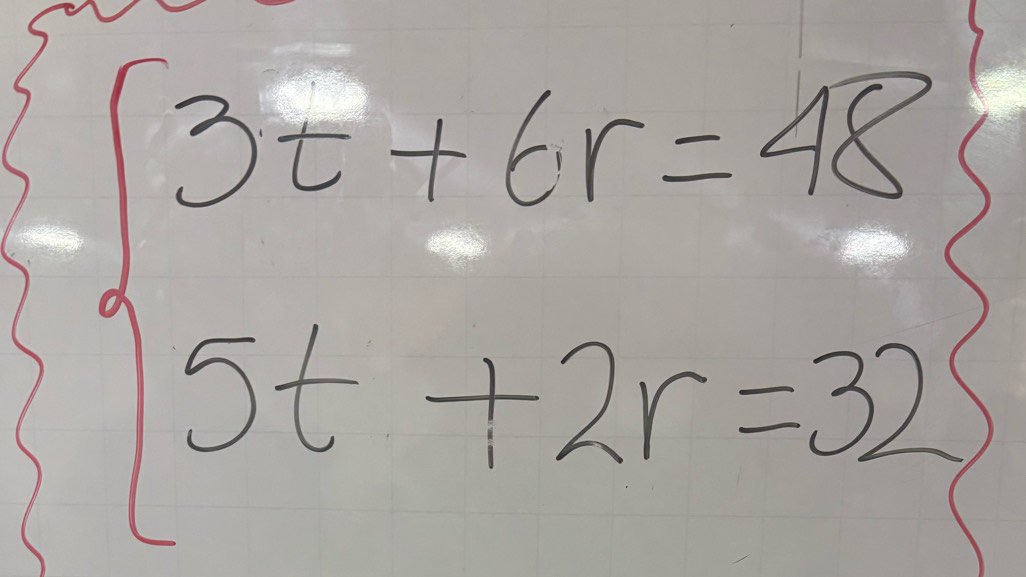 3t + 6r = 48
5t + 2r = 32